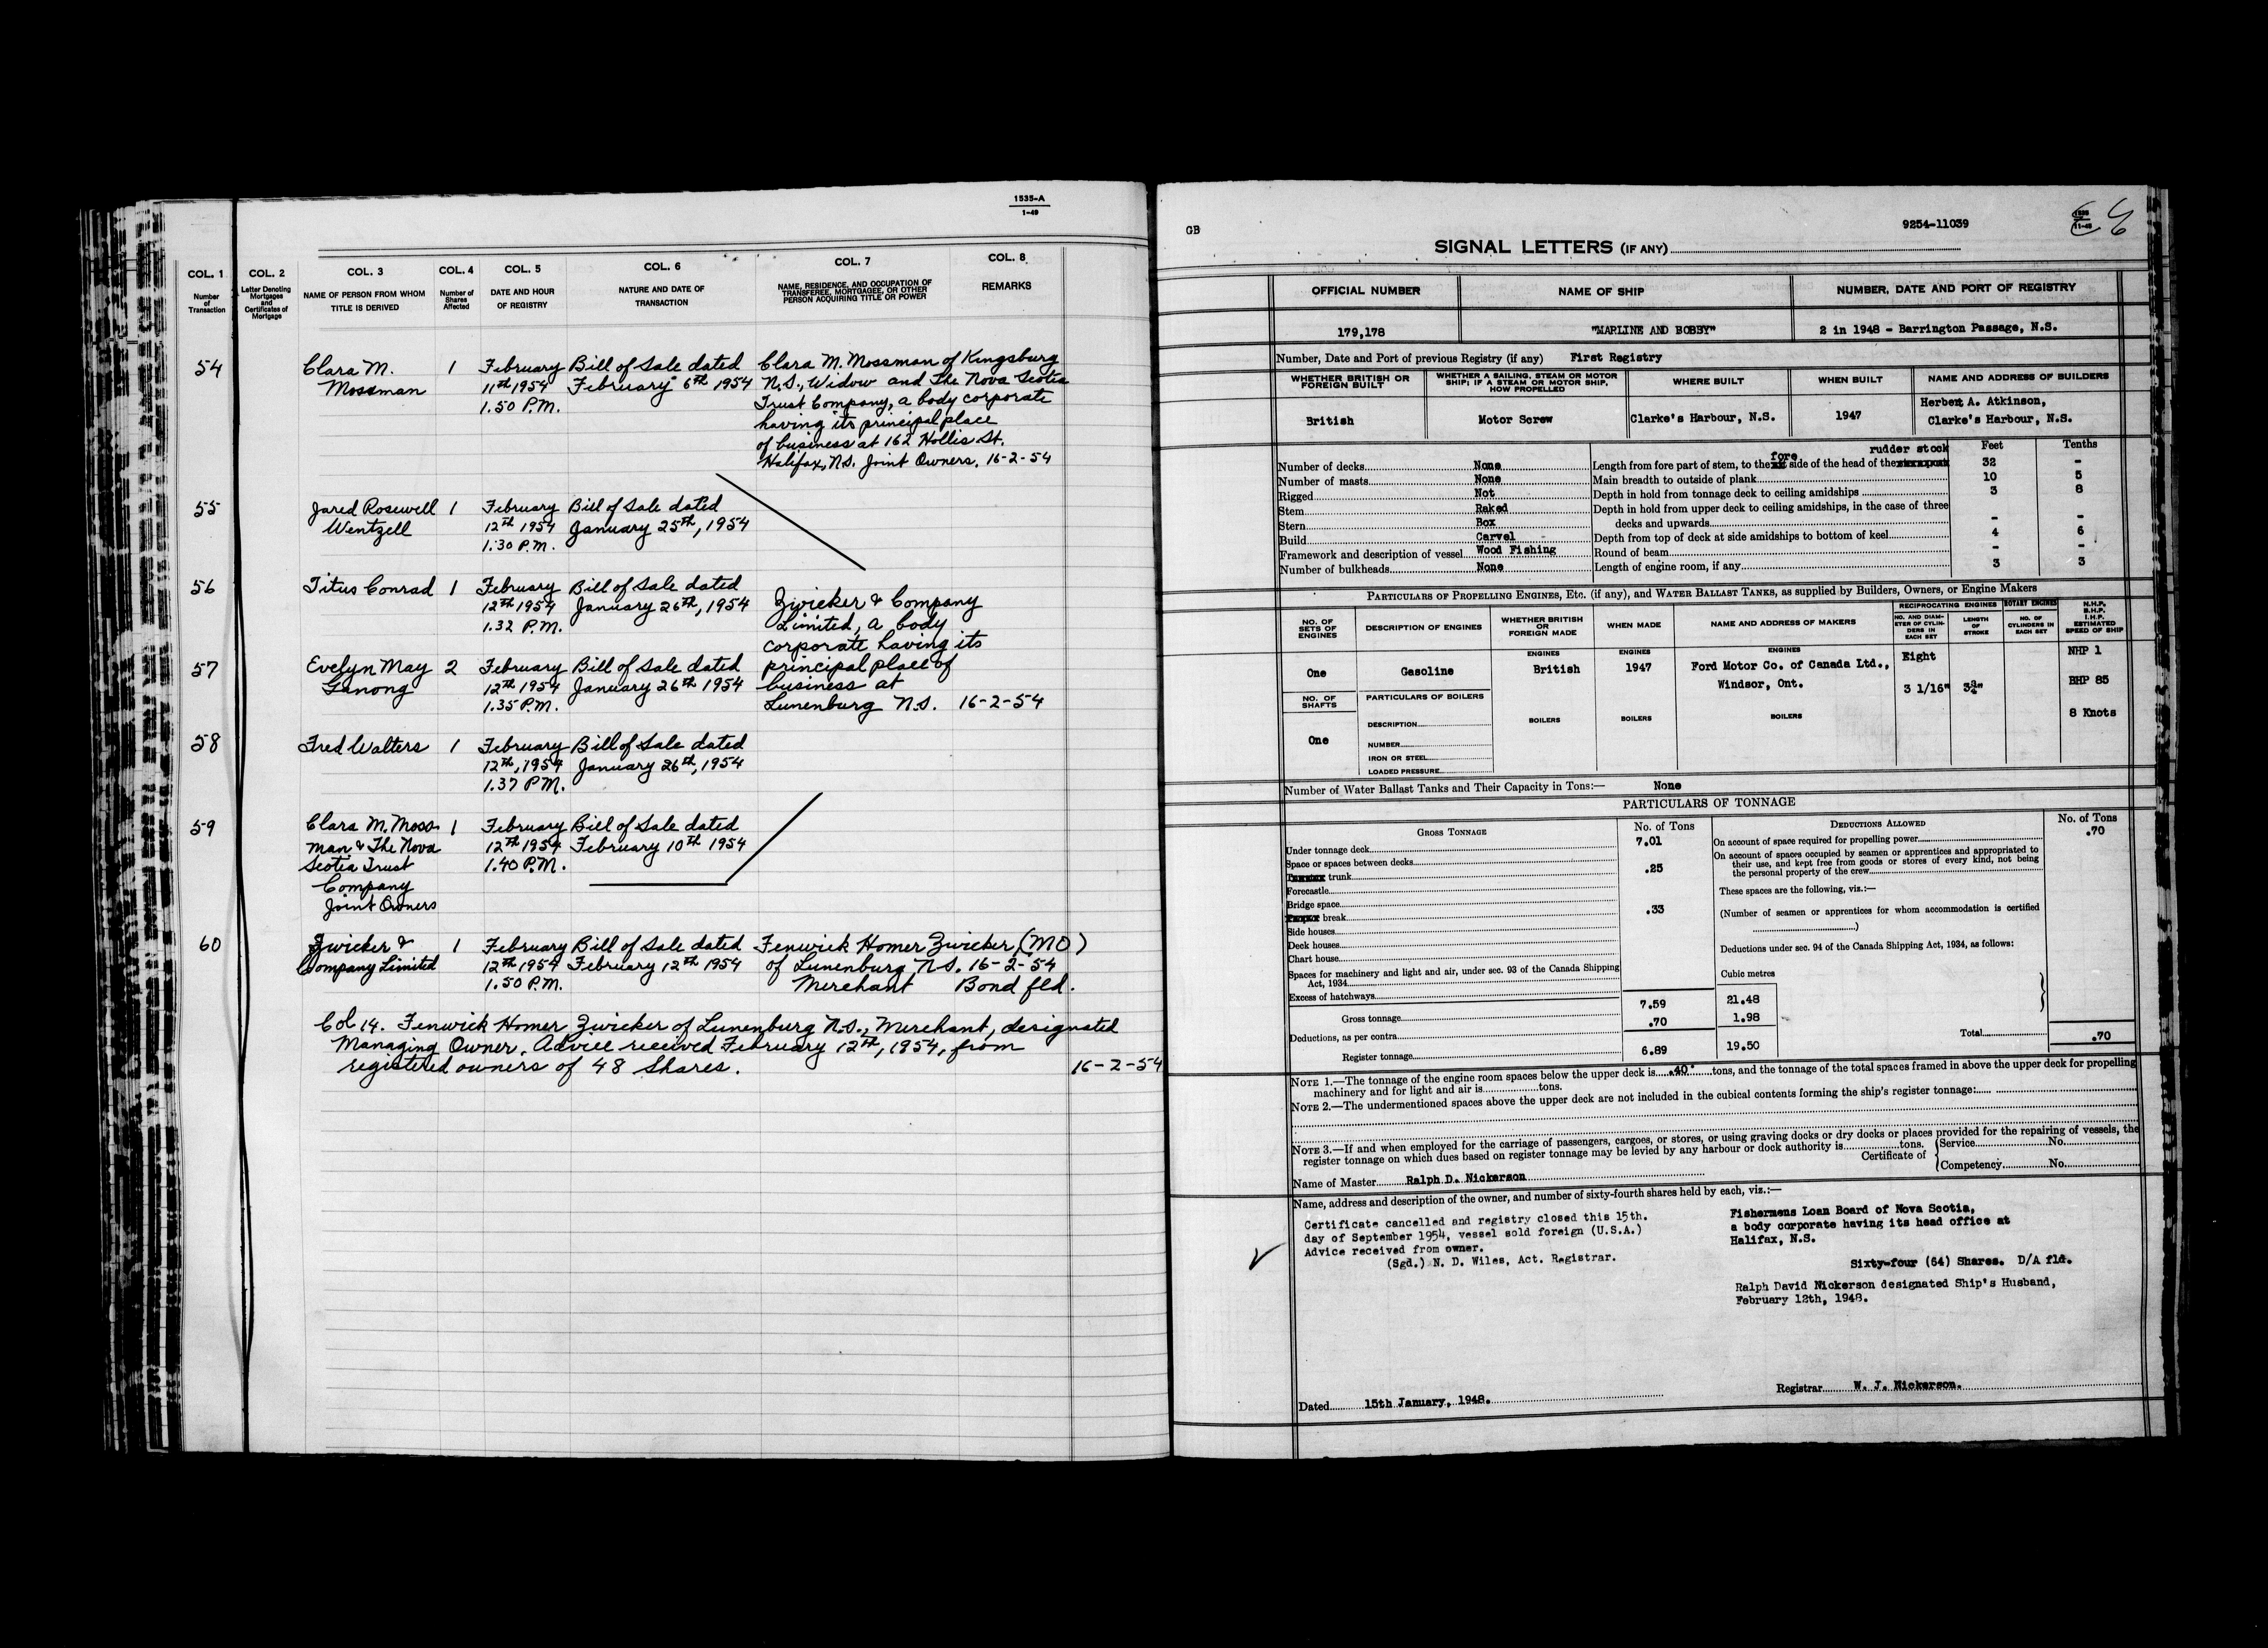 1535-A
1-49
COL. 1
Number
of
Transaction
COL. 2
Letter Denoting
Mortgages
and
Certificates of
Mortgage
COL. 3
NAME OF PERSON FROM WHOM
TITLE IS DERIVED
COL. 4
Number of
Shares
Affected
COL. 5
DATE AND HOUR
OF REGISTRY
COL. 6
NATURE AND DATE OF
TRANSACTION
COL. 7
NAME, RESIDENCE, AND OCCUPATION OF
TRANSFEREE, MORTGAGEE, OR OTHER
PERSON ACQUIRING TITLE OR POWER
COL. 8
REMARKS
54 Clara M. 1 February Bill of Sale dated Clara M. Mossman of Kingsburg
Mossman 11th 1954 February 6th 1954 N.S., Widow and The Nova Scotia
1.50 P.M. Trust Company, a body corporate
having its principal place
of business at 162 Hollis St.
Halifax, N.S. Joint Owners. 16-2-54
55 Jared Rosewell 1 February Bill of Sale dated
Wentzell 12th 1954 January 25th, 1954
1.30 P.M.
56 Titus Conrad 1 February Bill of Sale dated
12th 1954 January 26th, 1954 Zwicker & Company
1.32 P.M. Limited, a body
corporate having its
57 Evelyn May 2 February Bill of Sale dated principal place of
Ganong 12th 1954 January 26th 1954 business at
1.35 P.M. Lunenburg N.S. 16-2-54
58 Fred Walters 1 February Bill of Sale dated
12th, 1954 January 26th, 1954
1.37 P.M.
59 Clara M. Moss- 1 February Bill of Sale dated
man & The Nova 12th 1954 February 10th 1954
Scotia Trust 1.40 P.M.
Company
Joint Owners
60 Zwicker & 1 February Bill of Sale dated Fenwick Homer Zwicker (MO)
Company Limited 12th 1954 February 12th 1954 of Lunenburg N.S. 16-2-54
1.50 P.M. Merchant Bond fld.
Col 14. Fenwick Homer Zwicker of Lunenburg N.S., Merchant, designated
Managing Owner. Advice received February 12th, 1954, from
registered owners of 48 Shares. 16-2-54
GB
9254-11039
SIGNAL LETTERS (IF ANY)
OFFICIAL NUMBER NAME OF SHIP NUMBER, DATE AND PORT OF REGISTRY
179,178 "MARLINE AND BOBBY" 2 in 1948 - Barrington Passage, N.S.
Number, Date and Port of previous Registry (if any) First Registry
WHETHER BRITISH OR
FOREIGN BUILT
WHETHER A SAILING, STEAM OR MOTOR
SHIP; IF A STEAM OR MOTOR SHIP,
HOW PROPELLED
WHERE BUILT WHEN BUILT NAME AND ADDRESS OF BUILDERS
British Motor Screw Clarke's Harbour, N.S. 1947 Herbert A. Atkinson,
Clarke's Harbour, N.S.
Feet Tenths
Number of decks None
Number of masts None
Rigged Not
Stem Raked
Stern Box
Build Carvel
Framework and description of vessel Wood Fishing
Number of bulkheads None
fore rudder stock
Length from fore part of stem, to the side of the head of the 32 -
Main breadth to outside of plank 10 5
Depth in hold from tonnage deck to ceiling amidships 3 8
Depth in hold from upper deck to ceiling amidships, in the case of three
decks and upwards - -
Depth from top of deck at side amidships to bottom of keel 4 6
Round of beam - -
Length of engine room, if any 3 3
PARTICULARS OF PROPELLING ENGINES, ETC. (if any), and WATER BALLAST TANKS, as supplied by Builders, Owners, or Engine Makers
NO. OF
SETS OF
ENGINES
DESCRIPTION OF ENGINES
WHETHER BRITISH
OR
FOREIGN MADE
WHEN MADE
NAME AND ADDRESS OF MAKERS
RECIPROCATING ENGINES
NO. AND DIAM-
ETER OF CYLIN-
DERS IN
EACH SET
LENGTH
OF
STROKE
ROTARY ENGINES
NO. OF
CYLINDERS IN
EACH SET
N.H.P.
B.H.P.
I.H.P.
ESTIMATED
SPEED OF SHIP
ENGINES ENGINES ENGINES
One Gasoline British 1947 Ford Motor Co. of Canada Ltd., Eight NHP 1
Windsor, Ont. 3 1/16" 3¾" BHP 85
8 Knots
NO. OF
SHAFTS
PARTICULARS OF BOILERS
BOILERS BOILERS BOILERS
One
DESCRIPTION
NUMBER
IRON OR STEEL
LOADED PRESSURE
Number of Water Ballast Tanks and Their Capacity in Tons:— None
PARTICULARS OF TONNAGE
GROSS TONNAGE No. of Tons
Under tonnage deck 7.01
Space or spaces between decks
trunk .25
Forecastle
Bridge space
break .33
Side houses
Deck houses
Chart house
Spaces for machinery and light and air, under sec. 93 of the Canada Shipping
Act, 1934
Excess of hatchways
Cubic metres
Gross tonnage 7.59 21.48
Deductions, as per contra .70 1.98
Register tonnage 6.89 19.50
DEDUCTIONS ALLOWED No. of Tons
On account of space required for propelling power .70
On account of spaces occupied by seamen or apprentices and appropriated to
their use, and kept free from goods or stores of every kind, not being
the personal property of the crew
These spaces are the following, viz.:—
(Number of seamen or apprentices for whom accommodation is certified
)
Deductions under sec. 94 of the Canada Shipping Act, 1934, as follows:
Total .70
NOTE 1.—The tonnage of the engine room spaces below the upper deck is .40 tons, and the tonnage of the total spaces framed in above the upper deck for propelling
machinery and for light and air is tons.
NOTE 2.—The undermentioned spaces above the upper deck are not included in the cubical contents forming the ship's register tonnage:
NOTE 3.—If and when employed for the carriage of passengers, cargoes, or stores, or using graving docks or dry docks or places provided for the repairing of vessels, the
register tonnage on which dues based on register tonnage may be levied by any harbour or dock authority is tons.
Certificate of Service No.
Competency No.
Name of Master Ralph D. Nickerson
Name, address and description of the owner, and number of sixty-fourth shares held by each, viz.:—
Certificate cancelled and registry closed this 15th.
day of September 1954, vessel sold foreign (U.S.A.)
Advice received from owner.
(Sgd.) N. D. Wiles, Act. Registrar.
Fishermens Loan Board of Nova Scotia,
a body corporate having its head office at
Halifax, N.S.
Sixty-four (64) Shares. D/A fld.
Ralph David Nickerson designated Ship's Husband,
February 12th, 1948.
Dated 15th January, 1948.
Registrar W. J. Nickerson.